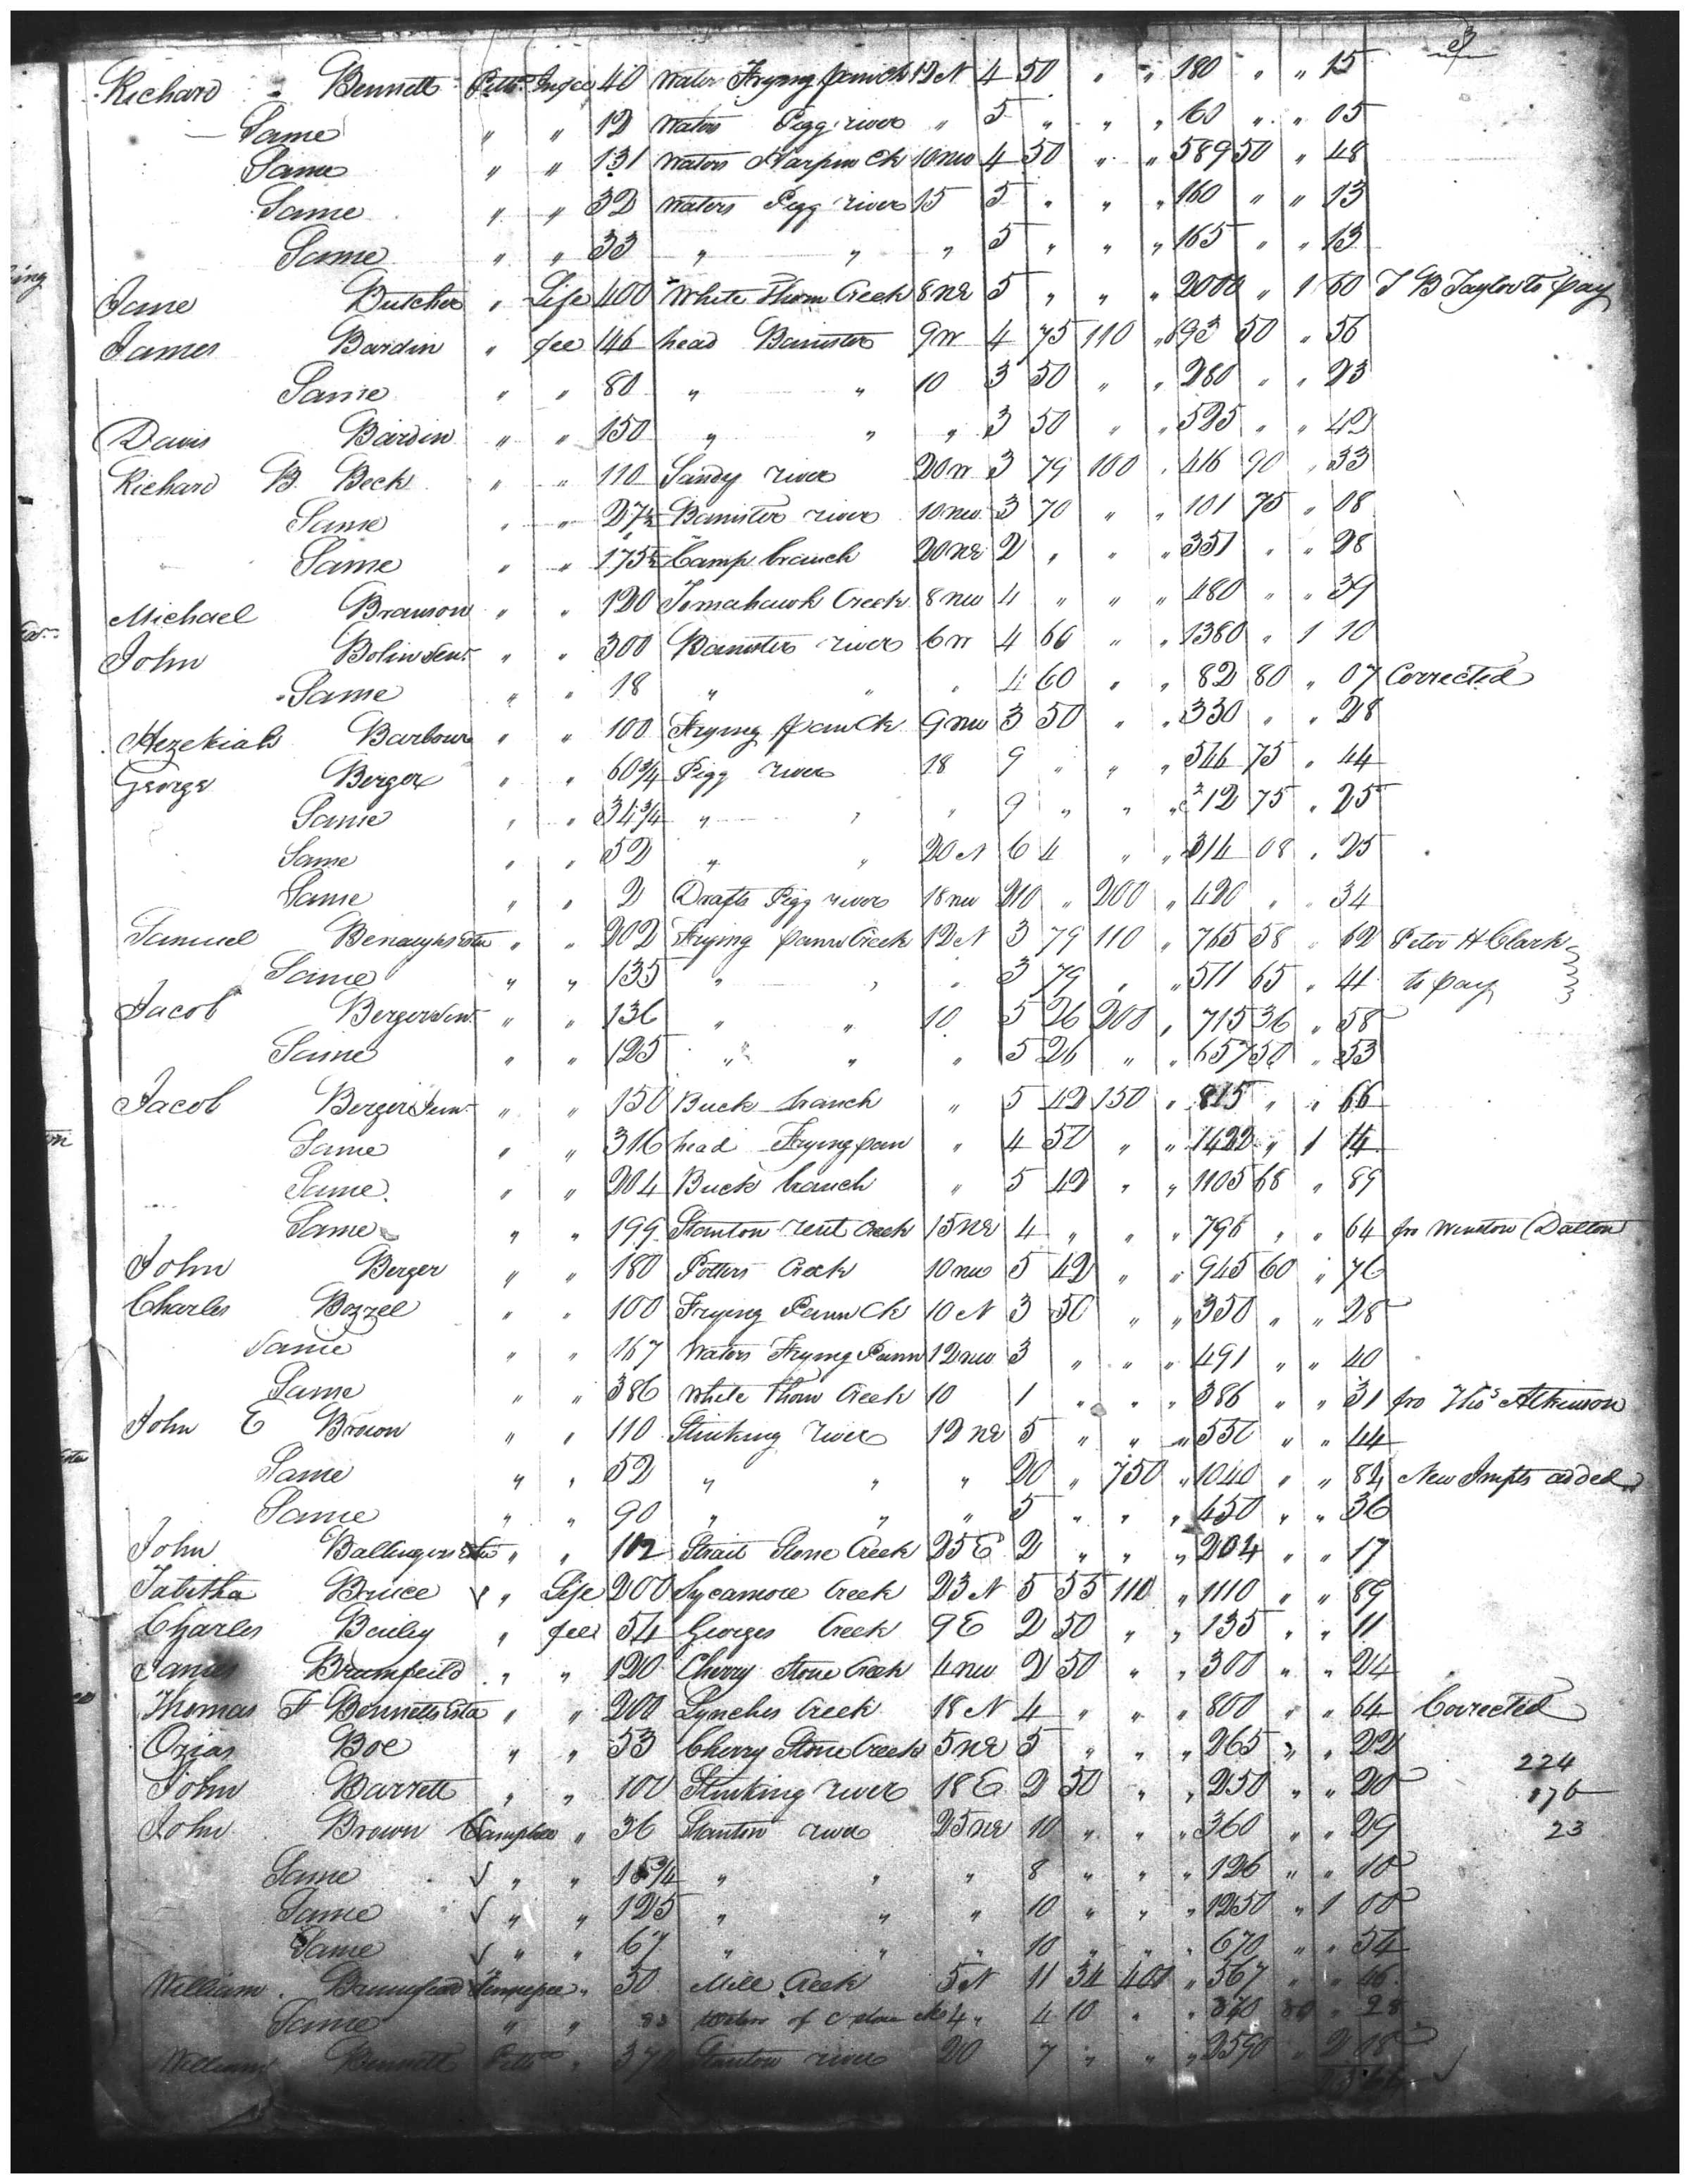 3
Richard Bennett Pitts Infee 40 Water Frying pan ck 12 N 4 50 " " 180 " " 15
Same " " 12 Waters Pigg river " 5 " " " 60 " " 05
Same " " 131 Waters Harpin Ck 10 nw 4 50 " " 589 50 " 48
Same " " 32 Waters Pigg river 15 5 " " " 160 " " 13
Same " " 33 " " " 5 " " " 165 " " 13
Jane Dutcher " Life 400 White Thorn Creek 8 NE 5 " " " 2000 " 1 60 T B Taylor to pay
James Bardin " fee 146 head Banister 9 W 4 75 110 " 693 50 " 56
Same " " 80 " " 10 3 50 " " 280 " " 23
Davis Bardin " " 150 " " " 3 50 " " 525 " " 42
Richard B Beck " " 110 Sandy river 20 W 3 79 100 " 416 90 " 33
Same " " 27½ Banister river 10 nw 3 70 " " 101 75 " 08
Same " " 175½ Camp branch 20 NE 2 " " " 351 " " 28
Michael Branson " " 120 Tomahawk Creek 8 nw 4 " " " 480 " " 39
John Bolin Senr " " 300 Banister river 6 W 4 60 " " 1380 " 1 10
Same " " 18 " " " 4 60 " " 82 80 " 07 Corrected
Hezekiah Barbour " " 100 Frying pan Ck 9 nw 3 50 " " 350 " " 28
George Berger " " 60¾ Pigg river 18 9 " " " 546 75 " 44
Same " " 34¾ " " " 9 " " " 312 75 " 25
Same " " 52 " " 20 N 6 4 " " 314 08 " 25
Same " " 2 Drafts Pigg river 18 nw 210 " 200 " 420 " " 34
Samuel Esta " " 202 Frying pann Creek 12 N 3 79 110 " 765 58 " 62 Peter H Clark
Same " " 135 " " " 3 79 " " 511 65 " 41 to pay
Jacob Berger Senr " " 136 " " 10 5 26 200 " 715 36 " 58
Same " " 125 " " " 5 26 " " 657 50 " 53
Jacob Berger Junr " " 150 Buck branch " 5 42 150 " 815 " " 66
Same " " 316 head Frying pan " 4 50 " " 1422 " 1 14
Same " " 204 Buck branch " 5 42 " " 1105 68 " 89
Same " " 199 Stanton Creek 15 NE 4 " " " 796 " " 64 fro Winston Dalton
John Berger " " 180 Potters Creek 10 nw 5 42 " " 945 60 " 76
Charles Bozzel " " 100 Frying Pann Ck 10 N 3 50 " " 350 " " 28
Same " " 167 Waters Frying Pann 12 nw 3 " " " 491 " " 40
Same " " 386 White Thorn Creek 10 1 " " " 386 " " 31 fro Thos Atkinson
John E Brown " " 110 Stinking river 12 NE 5 " " " 550 " " 44
Same " " 52 " " " 20 " 750 " 1040 " " 84 New Impts added
Same " " 90 " " " 5 " " " 450 " " 36
John Ballingers Esta " " 102 Strait Stone Creek 25 E 2 " " " 204 " " 17
Tabitha Bruce √ " Life 200 Sycamore Creek 23 N 5 55 110 " 1110 " " 89
Charles Bailey " fee 54 Georges Creek 9 E 2 50 " " 135 " " 11
James Brumfeild " " 120 Cherry Stone Creek 4 nw 2 50 " " 300 " " 24
Thomas F Bennetts Esta " " 200 Lynches Creek 18 N 4 " " " 800 " " 64 Corrected
Ozias Boe " " 53 Cherry Stone Creek 5 NE 5 " " " 265 " " 22
224
John Barrett " " 100 Stinking river 18 E 2 50 " " 250 " " 20
176
John Brown Campbell " 36 Stanton river 25 NE 10 " " " 360 " " 29
23
Same √ " " 15¾ " " " 8 " " " 126 " " 10
Same √ " " 125 " " " 10 " " " 1250 " 1 00
Same √ " " 67 " " " 10 " " " 670 " " 54
William Brumfield Tennessee " 50 Mill Creek 5 N 11 34 400 " 567 " " 46
Same " " Waters of C stone ck 4 " 4 10 " " " 28
William Bennett Pitts " 370 Stanton river 20 7 " " " 2590 " 2 08